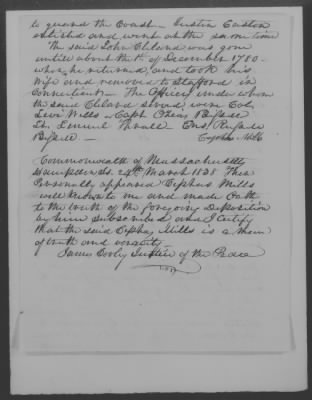 to guard the Coast – Justin Easton
enlisted and went at the same time
The said John Cleland was gone
untill about the 1st of December 1780 –
when he returned, and took his
Wife and removed to Stafford in
Connecticut – The Officers under whom
the said Cleland served were Col.
Levi Wells – Capt
Lt. Lemuel Ens.
Cephas Mills
Commonwealth of Massachusetts
Hampden Ss. 24th March 1838 Then
Personally appeared Cephas Mills
well known to me and made Oath
to the truth of the foregoing Deposition
by him subscribed and I certify
that the said Cephas Mills is a man
of truth and veracity –
James Cooly Justice of the Peace